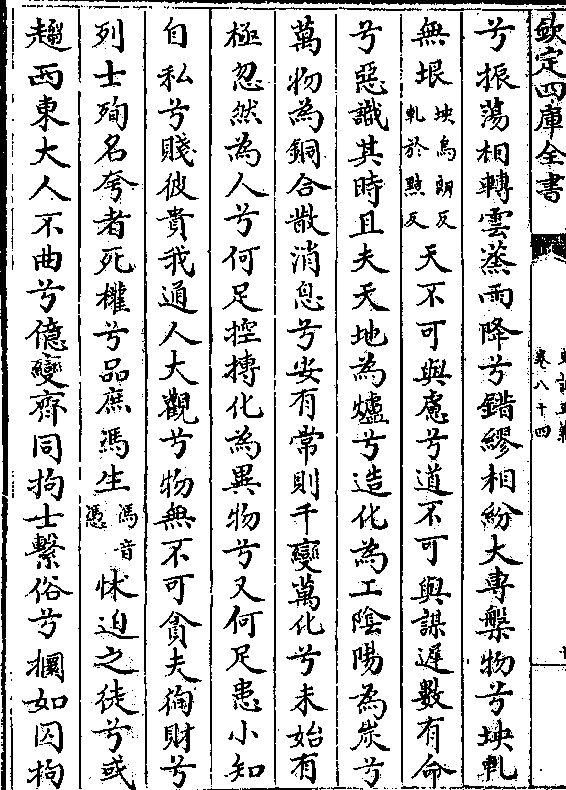 欽定四庫全書
卷八十四
兮振蕩相轉雲蒸雨降兮錯繆相紛大專槃物兮坱軋
無垠坱烏朗反軋於㸃反天不可與慮兮道不可與謀遲數有命
兮惡識其時且夫天地為爐兮造化為工陰陽為炭兮
萬物為銅合散消息兮安有常則千變萬化兮未始有
極忽然為人兮何足控摶化為異物兮又何足患小知
自私兮賤彼貴我通人大觀兮物無不可貪夫徇財兮
列士殉名夸者死權兮品庶馮生馮音憑怵迫之徒兮或
趨西東大人不曲兮億變齊同拘士繫俗兮攌如囚拘